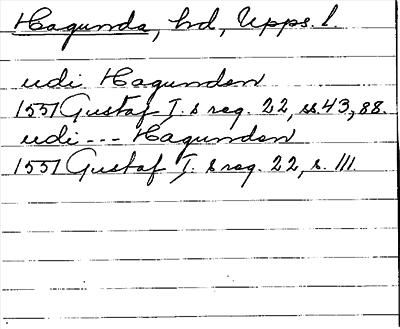 Hagunda, hd, Upps. l.
udi Hagunden
1551 Gustaf I. s reg. 22, ss. 43, 88.
udi --- Hagunden
1551 Gustaf I. s reg. 22, s. 111.